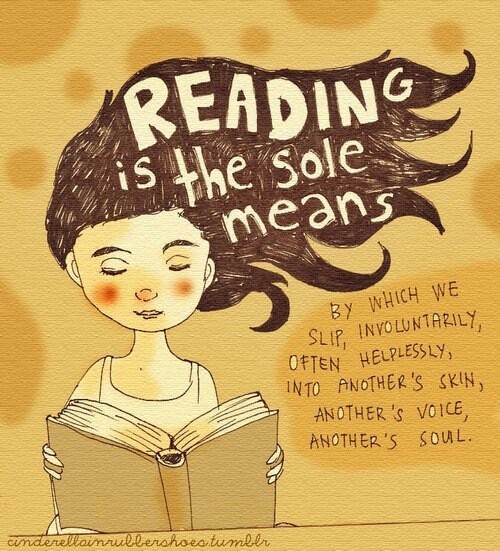 READING
is the sole
means
BY WHICH WE
SLIP, INVOLUNTARILY,
OFTEN HELPLESSLY,
INTO ANOTHER'S SKIN,
ANOTHER'S VOICE,
ANOTHER'S SOUL.
cinderellainrubbershoes.tumblr